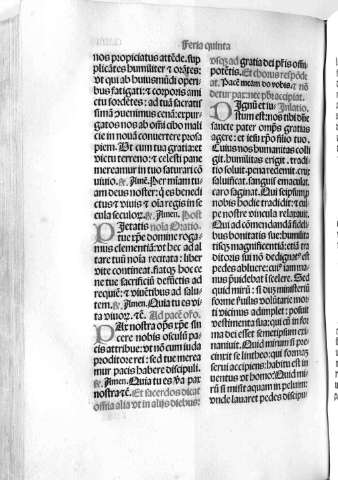 Feria quinta
nos propiciatus attẽde. sup
plicãtes humiliter ⁊ orãtes:
vt qui ab huiusmõdi operi-
bus fatigati: ⁊ corporis ami
ctu sordẽtes: ad tuã sacratis
simã
nos ab officii
in
piem. Et cum tua gratia: et
victu terreno: ⁊ celesti pane
mereamur in tuo saturari cõ
uiuio. ℟. Amẽ. Per misam tu
am deus noster: q̇ es benedi
ctus ⁊ viuis ⁊ oĩa regis in se
cula seculoꝝ. ℟. Amen. Post
Pietatis noĩa Oratio.
tue xp̃e domine roga-
mus clementiã: vt hec ad al
tare tuũ noĩa recitata: liber
vite contineat. fiatq̃ hoc ce
ne tue sacrificiũ defũctis ad
requiẽ: ⁊ viuẽtibus ad salu-
tem. ℟. Amen. Quia tu es vi-
ta viuoꝝ. ⁊c̃. Ad pacẽ oĩo.
Pax nostra op̃s xp̃e sin
cere nobis osculũ pa-
cis attribue: vt nõ cum iuda
proditore rei: sed tue merea
mur pacis habere discipuli.
℟. Amen. Quia tu es ṽa pax
nostra ⁊c̃. Et sacerdos dicat
omnia alia vt in alijs diebus:
vsq̃ ad gratia dei p̃ris oĩpi
potẽtis. Et chorus respõde
at. Pacẽ meam do vobis. ⁊ nõ
detur pax: nec p̃br accipiat.
Dignũ et iu- Inlatio.
stum est: nos tibi dñe
sancte pater omp̃s gratias
agere: et iesu xp̃o filio tuo.
Cuius nos humanitas colli
git. humilitas erigit. tradi-
tio soluit. pena redemit. crux
saluificat. sanguis emaculat.
caro saginat. Qui seipsum
nobis hodie tradidit: ⁊ cul
pe nostre vincula relaxauit.
Qui ad cõmendandã fideli-
bus bonitatis sue: humilita
tisq̃ magnificentiã: etiã tra
ditoris sui nõ dedignatꝰ est
pedes abluere: cuiꝰ iam ma-
nus p̃uidebat ĩ scelere. Sed
quid mirũ: si
forme
ti vicinus adimplet: posuit
vestimenta sua: qui cũ in for
ma dei esset semetipsum exi-
naniuit. Quid mirum si pre
cinxit se lintheo: qui formaʒ
serui accipiens: habitu est in
uentus vt homo: Quid mi-
rũ si misit aquam in peluim:
vnde lauaret pedes discipu